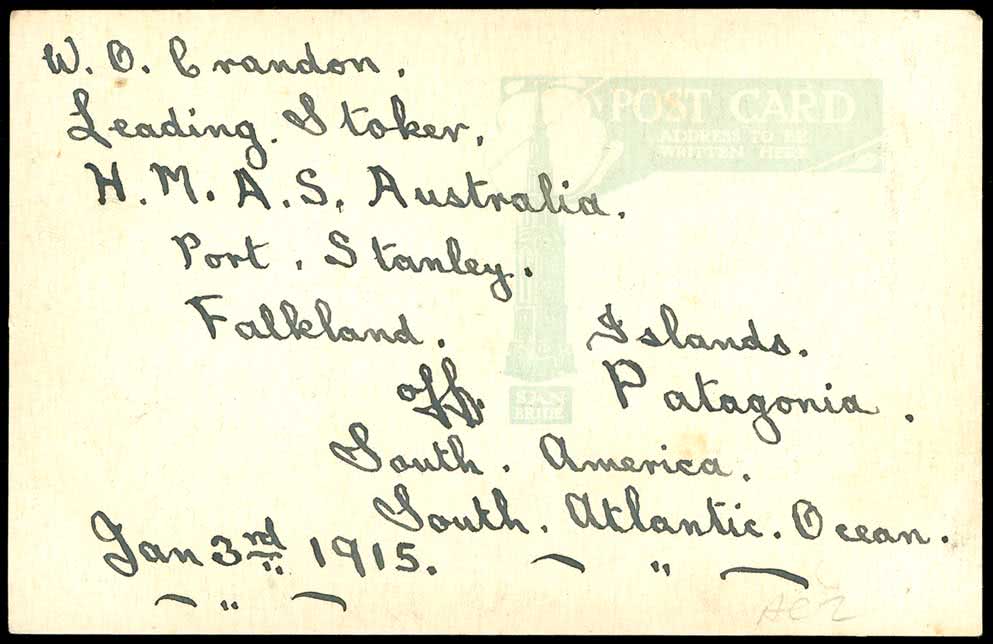 W. O. Crandon.
Leading. Stoker.
H. M. A. S. Australia.
Port. Stanley.
Falkland. Islands.
off. Patagonia.
South. America.
South. Atlantic. Ocean.
Jan 3rd 1915.
POST CARD
ADDRESS TO BE
WRITTEN HERE
BRIDE